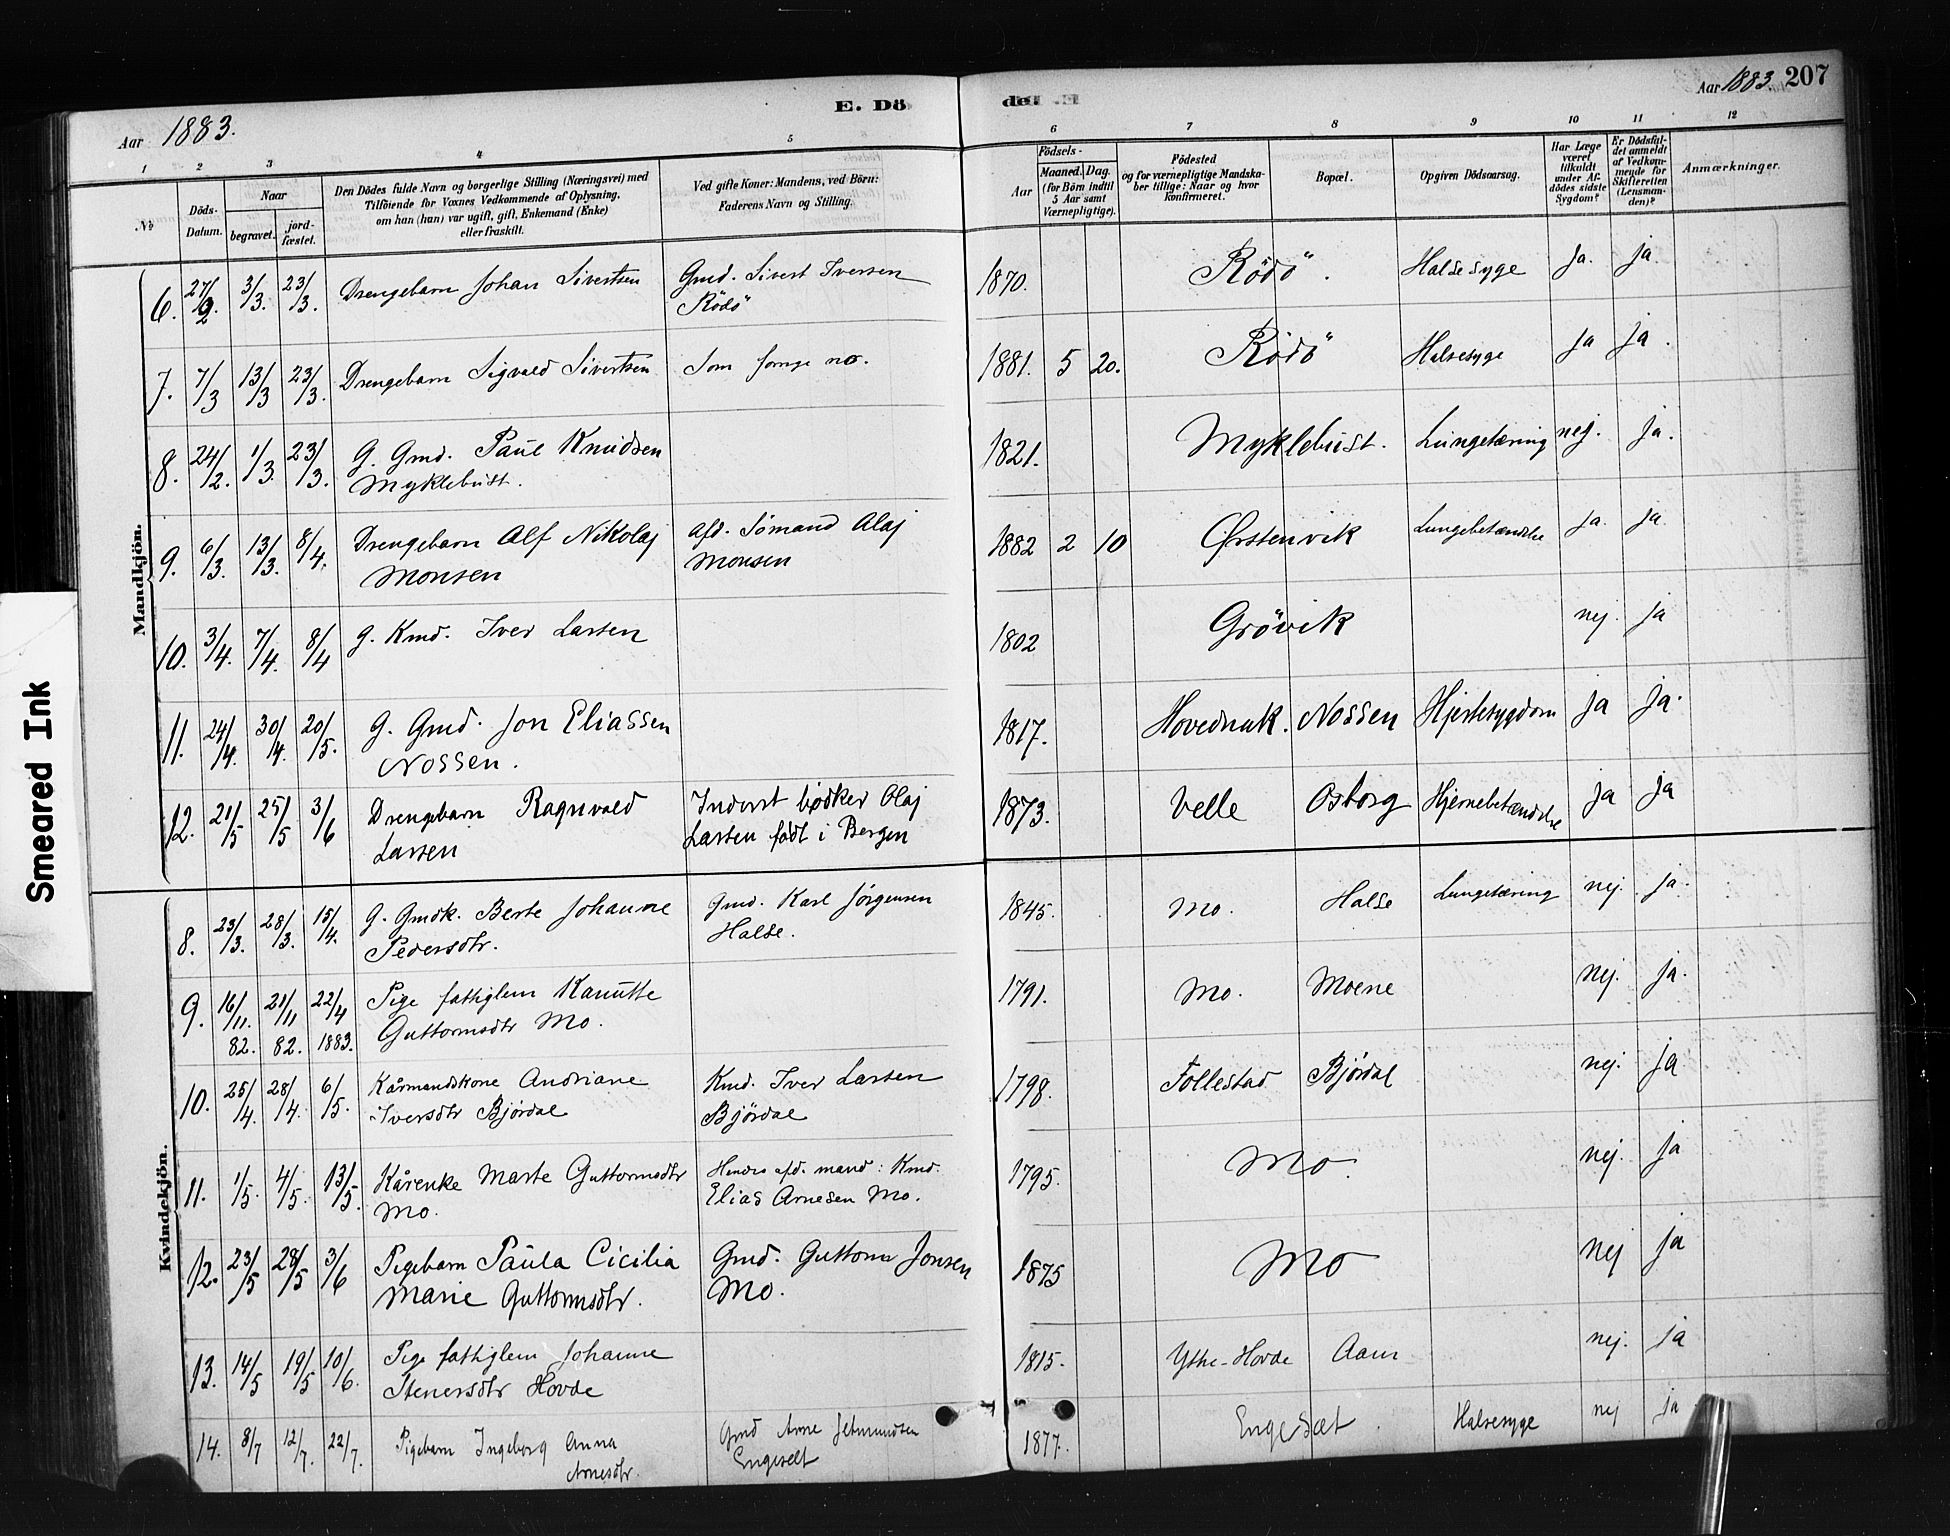 Smeared Ink
E. Dö
de. E
Aar 1883.
Aar 1883. 207
1 2 3 4 5 6 7 8 9 10 11 12
No
Döds-Datum.
Naar
begravet.
jord-fæstet.
Den Dödes fulde Navn og borgerlige Stilling (Næringsvei) med
Tilföiende for Voxnes Vedkommende af Oplysning,
om han (hun) var ugift, gift, Enkemand (Enke)
eller fraskilt.
Ved gifte Koner: Mandens, ved Börn:
Faderens Navn og Stilling.
Födsels-
Aar
Maaned. Dag.
(for Börn indtil
5 Aar samt
Værnepligtige).
Födested
og for værnepligtige Mandska-
ber tillige: Naar og hvor
konfirmeret.
Bopæl.
Opgiven Dödsaarsag.
Har Læge
været
tilkaldt
under Af-
dödes sidste
Sygdom?
Er Dödsfal-
det anmeldt
af Vedkom-
mende for
Skifteretten
(Lensman-
den)?
Anmærkninger.
Mandkjön.
6. 27/2. 3/3. 23/3. Drengebarn Johan Sivertsen Gmd. Sivert Iversen 1870. Rödö. Halsesyge Ja. ja.
Rödö
7. 7/3 13/3 23/3. Drengebarn Sigvald Sivertsen Som forrige no. 1881. 5 20. Rödö Halsesyge ja ja.
8. 24/2. 1/3. 23/3. G. Gmd. Paul Knudsen 1821. Myklebust. Lungetæring nej. ja.
Myklebust.
9. 6/3. 13/3. 8/4. Drengebarn Alf Nikolaj afd. Sömand Olaj 1882 2 10 Ørstenvik Lungebetændelse ja. ja.
Monsen Monsen
10. 3/4. 7/4. 8/4 g. Kmd. Iver Larsen 1802 Grövik nej. ja
11. 24/4. 30/4. 20/5. G. Gmd. Jon Eliassen 1817. Hovednak. Nossen Hjertesygdom ja ja.
Nossen.
12. 21/5 25/5 3/6 Drengebarn Ragnvald Inderst bødker Olaj 1873. Velle Osborg Hjernebetændelse ja ja
Larsen Larsen født i Bergen
Kvindekjön.
8. 23/3. 28/3. 15/4. G. Gmdk. Berte Johanne Gmd. Karl Jørgensen 1845. Mo. Halse Lungetæring nej. ja.
Pedersdtr. Halse.
9. 16/11. 82. 21/11 82. 22/4 1883. Pige fattiglem Kanutte 1791. Mo. Moene nej. ja.
Guttormsdtr Mo.
10. 25/4. 28/4. 6/5. Kårmandskone Andriane Kmd. Iver Larsen 1798. Follestad Björdal nej. ja
Iversdtr Björdal Björdal
11. 1/5. 4/5. 13/5. Kårenke Marte Guttormsdtr Hendes afd. mand: Kmd. 1795. Mo. nej. ja
Mo. Elias Arnesen Mo.
12. 23/5 28/5 3/6 Pigebarn Paula Cicilia Gmd. Guttorm Jonsen 1875 Mo nej ja
Marie Guttormsdtr. Mo.
13. 14/5 19/5 10/6. Pige fattiglem Johanne 1815. Ytre-Hovde Aam nej. ja
Stenersdtr Hovde
14. 8/7 12/7. 22/7. Pigebarn Ingeborg Anna Gmd Arne Jetmundsen 1877. Engesæt. Halsesyge nej ja.
Arnesdtr. Engeselt